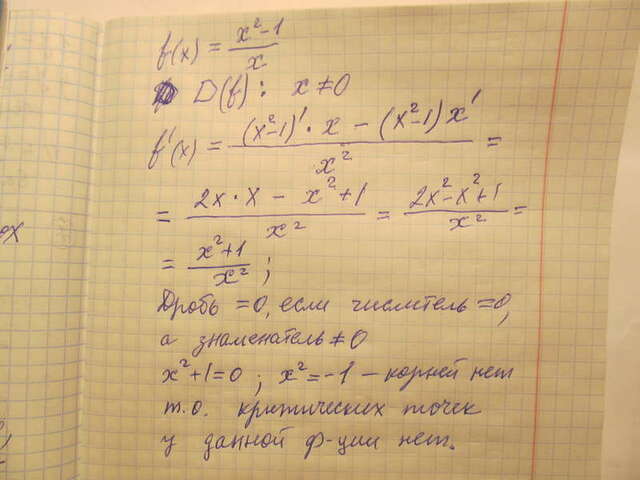 f(x) = (x²-1)/x
D(f): x ≠ 0
f'(x) = ((x²-1)' · x - (x²-1) x')/x² =
= (2x · x - x²+1)/x² = (2x²-x²+1)/x² =
= (x²+1)/x² ;
Дробь =0, если числитель =0,
а знаменатель ≠ 0
x²+1=0 ; x²=-1 - корней нет
т.о. критических точек
у данной ф-ции нет.